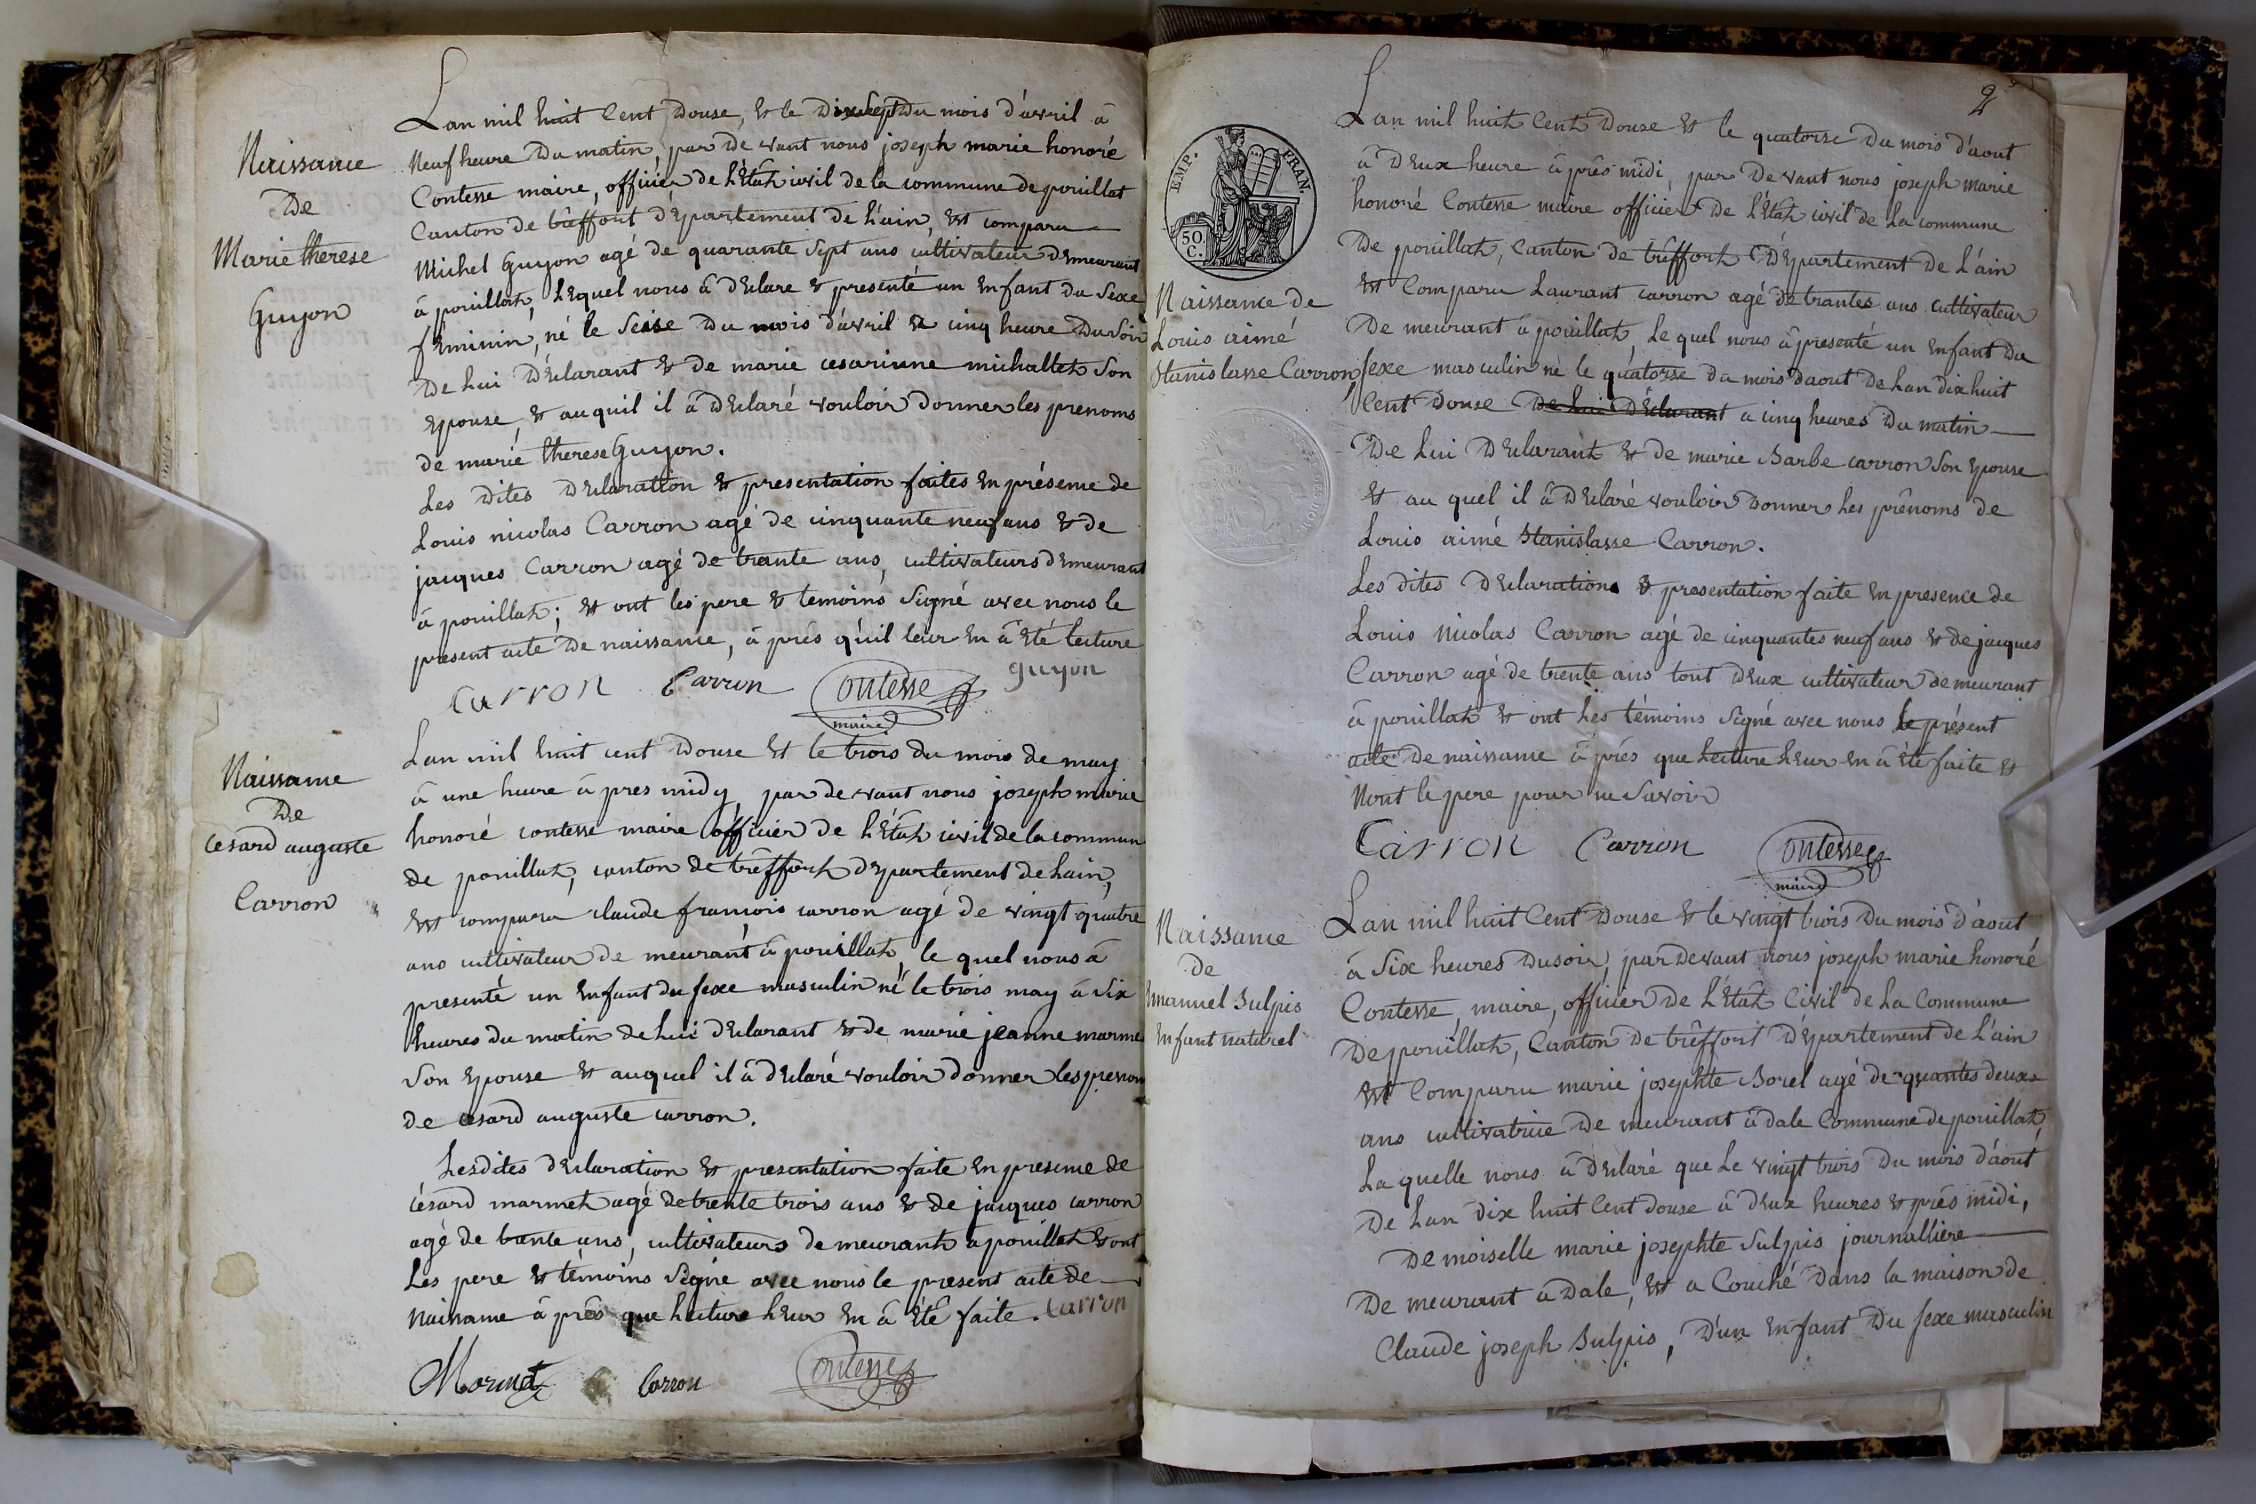 Naissance
De
Marie therese
Guyon
Lan mil huit Cent Douse, & le Dixsept Du mois d'avril â
Neuf heure Du matin, par De vant nous joseph marie honoré
Contesse maire, officier de l'État civil de la commune de pouillat
Canton de trêffort département de l'ain, Est comparu
Michel Guyon agé de quarante Sept ans cultivateur Demeurant
à pouillat, Lequel nous â Déclare & presenté un Enfant du Sexe
feminin, né le Seise Du mois d'avril a cinq heure Du Soir
De Lui Déclarant & de marie cesarinne michallet Son
Epouse, & auquil il â Déclaré vouloir Donner les prenoms
de marie therese Guyon.
Les Dites Déclaration & presentation faites En présence de
Louis nicolas Carron agé de cinquante neuf ans & de
jacques Carron agé de trante ans, cultivateurs Demeurant
à pouillat; & ont les pere & temoins Signé avec nous le
present acte De naissance, â prés qu'il leur En â Eté lecture
Carron Carron Contesse guyon
maire
Naissance
De
Cesard auguste
Carron
Lan mil huit cent Douse & le trois du mois de may
â une heure â pres midy, par de vant nous joseph marie
honoré contesse maire officier de L'État civil de la commun
de pouillat, canton de trêffort département de Lain,
Est comparu claude francois carron agé de vingt quatre
ans cultivateur de meurant â pouillat, le quel nous â
presenté un Enfant du sexe masculin né le trois may â Six
heures du matin de Lui Déclarant & de marie jeanne marme
Son Epouse & auquel il â Déclaré vouloir Donner les prenom
de cesard auguste carron.
Lesdites Declaration & presentation faite En presence de
césard marmet agé de trente trois ans & de jacques carron
agé de trante ans, cultivateurs de meurant a pouillat & ont
Les pere & temoins Signé avec nous le present acte de
Naissance â prés que Lecture Leur En â Eté faite. Carron
Marmet Carron Contesse
2
EMP. FRAN.
50
C.
Naissance de
Louis aimé
Stanislasse Carron
Lan mil huit Cent Douse & le quatorse Du mois d'aout
â Deux heure â prés midi, par De vant nous joseph marie
honoré Contesse maire officier De L'État civil de La commune
De pouillat, Canton de trêffort Département de L'ain
Est Comparu Laurant carron agé de trantes ans Cultivateur
De meurant â pouillat Le quel nous â presenté un Enfant Du
sexe masculin né le quatorse du mois daout De Lan dix huit
Cent Douse De Lui Déclarant a cinq heures Du matin
De Lui Déclarant & de marie Barbe carron Son Epouse
& au quel il â Déclaré vouloir Donner Les prénoms de
Louis aimé Stanislasse Carron.
Les Dites Déclarations & presentation faite En presence de
Louis Nicolas Carron agé de cinquantes neuf ans & de jacques
Carron agé de trente ans tout Deux cultivateur de meurant
â pouillat & ont Les témoins Signé avec nous Le présent
acte De naissance â prés que Lecture Leur En â Eté faite &
Nont le pere pour ne Savoir
Carron Carron Contesse
maire
Naissance
de
Emanuel Sulpis
Enfant naturel
Lan mil huit Cent Douse & le vingt trois Du mois d'aout
â Six heures Du soir, par devant nous joseph marie honoré
Contesse, maire, officier De L'État Civil de La Commune
De pouillat, Canton De trêffort Département De L'ain
Est Comparu marie josephte Borel agé de quantes deux
ans cultivatrice De meurant â dale Commune de pouillat,
La quelle nous â Déclaré que Le vingt trois Du mois d'aout
De Lan Dix huit Cent Douse â Deux heures & prés midi,
De moiselle marie josephte Sulpis journallière
De meurant a Dale, Est a Couché Dans la maison de
Claude joseph Sulpis, D'un Enfant Du sexe masculin